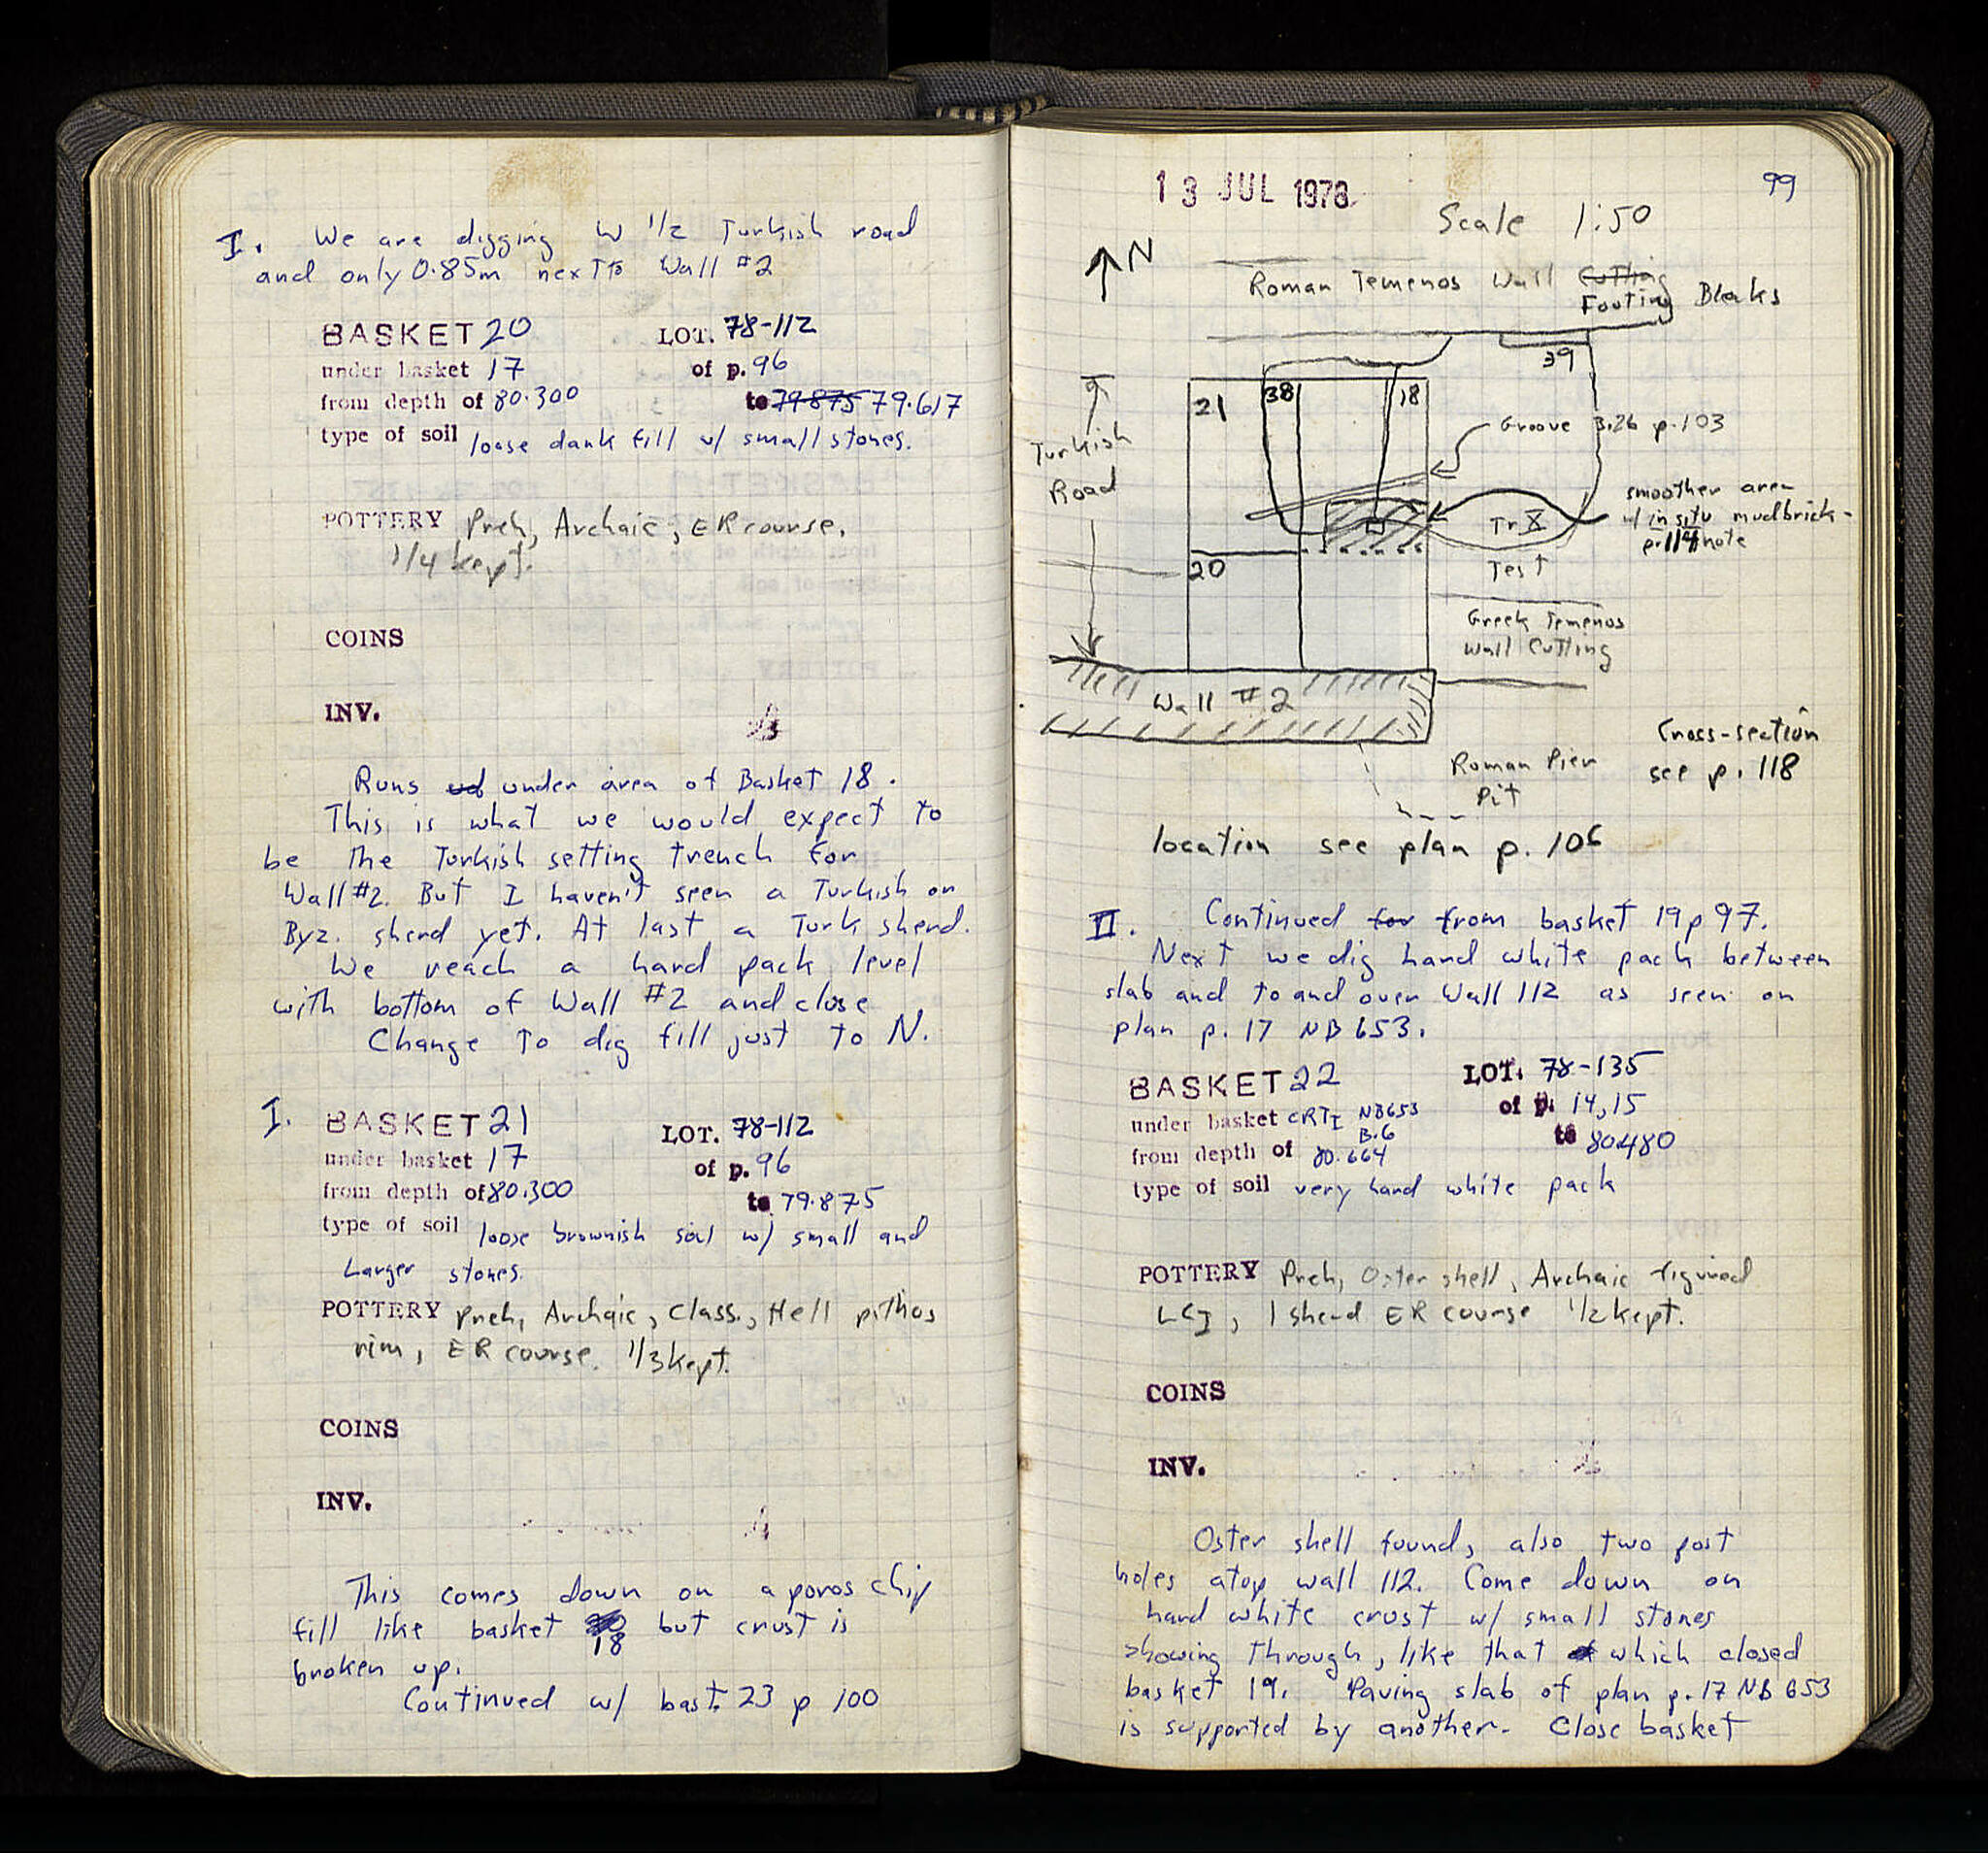 I. We are digging W 1/2 Turkish road
and only 0.85m next to Wall #2
BASKET 20 LOT. 78-112
under basket 17 of p. 96
from depth of 80.300 to 79875 79.617
type of soil loose dark fill w/ small stones.
POTTERY Preh, Archaic, ER course.
1/4 kept.
COINS
INV.
Runs under area of Basket 18.
This is what we would expect to
be the Turkish setting trench for
Wall #2. But I haven't seen a Turkish or
Byz. sherd yet. At last a Turk sherd.
We reach a hard pack level
with bottom of Wall #2 and close
Change to dig fill just to N.
I. BASKET 21 LOT. 78-112
under basket 17 of p. 96
from depth of 80.300 to 79.875
type of soil loose brownish soil w/ small and
Larger stones.
POTTERY Preh, Archaic, Class., Hell pithos
rim, ER course. 1/3 kept.
COINS
INV.
This comes down on a poros chip
fill like basket 18 but crust is
broken up.
Continued w/ bast. 23 p 100
13 JUL 1978 99
Scale 1:50
N
Roman Temenos Wall Cutting
Footing Blocks
39
21 38 18
Groove 3.26 p. 103
Turkish
Road
smoother area
w/ in situ mudbrick-
p. 114 note
Tr X
Test
20
Greek Temenos
Wall Cutting
Wall #2
Cross-section
see p. 118
Roman Pier
Pit
location see plan p. 106
II. Continued for from basket 19 p 97.
Next we dig hard white pack between
slab and to and over Wall 112 as seen on
plan p. 17 NB 653.
BASKET 22 LOT. 78-135
under basket CRTI NB653 B.6 of p. 14,15
from depth of 80.664 to 80.480
type of soil very hard white pack
POTTERY Preh, Oster shell, Archaic figured
LCI, 1 sherd ER course 1/2 kept.
COINS
INV.
Oster shell found, also two post
holes atop wall 112. Come down on
hard white crust w/ small stones
showing through, like that which closed
basket 19. Paving slab of plan p. 17 NB 653
is supported by another. Close basket